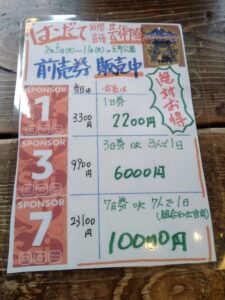 はこだて国際民俗芸術祭
前売券 販売中
絶対お得
SPONSOR
1
当日
3300円
前売
1日券
2200円
SPONSOR
3
9900円
3日券 or 3人で1日
6000円
SPONSOR
7
23100円
7日券 or 7人で1日
10000円